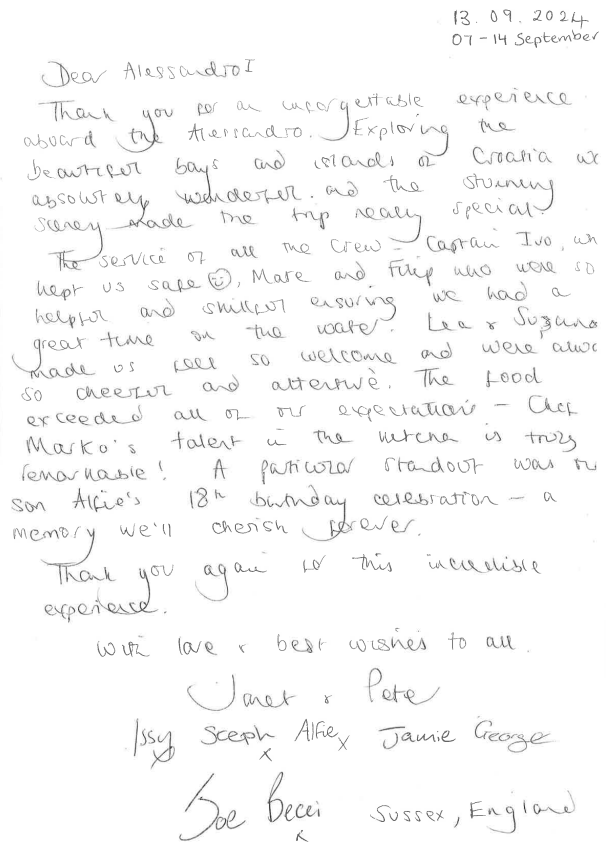 13. 09. 2024
07-14 September
Dear Alessandro I
Thank you for an unforgettable experience
aboard the Alessandro. Exploring the
beautiful bays and islands of Croatia
absolutely wonderful. and the stunning
scenery made the trip really special.
The service of all the Crew - Captain Ivo,
kept us safe ☺, Mate and Filip who were so
helpful and skillful ensuring we had a
great time on the water. Lea & 
made us feel so welcome and were
so cheerful and attentive. The food
exceeded all of our expectations - Chef
Marko's talent in the kitchen is truly
remarkable! A particular standout was
son Alfie's 18th birthday celebration - a
memory we'll cherish forever.
Thank you again for this incredible
experience.
With love & best wishes to all.
Janet & Pete
Issy x Steph x Alfie x Jamie George
Joe Becci x Sussex, England